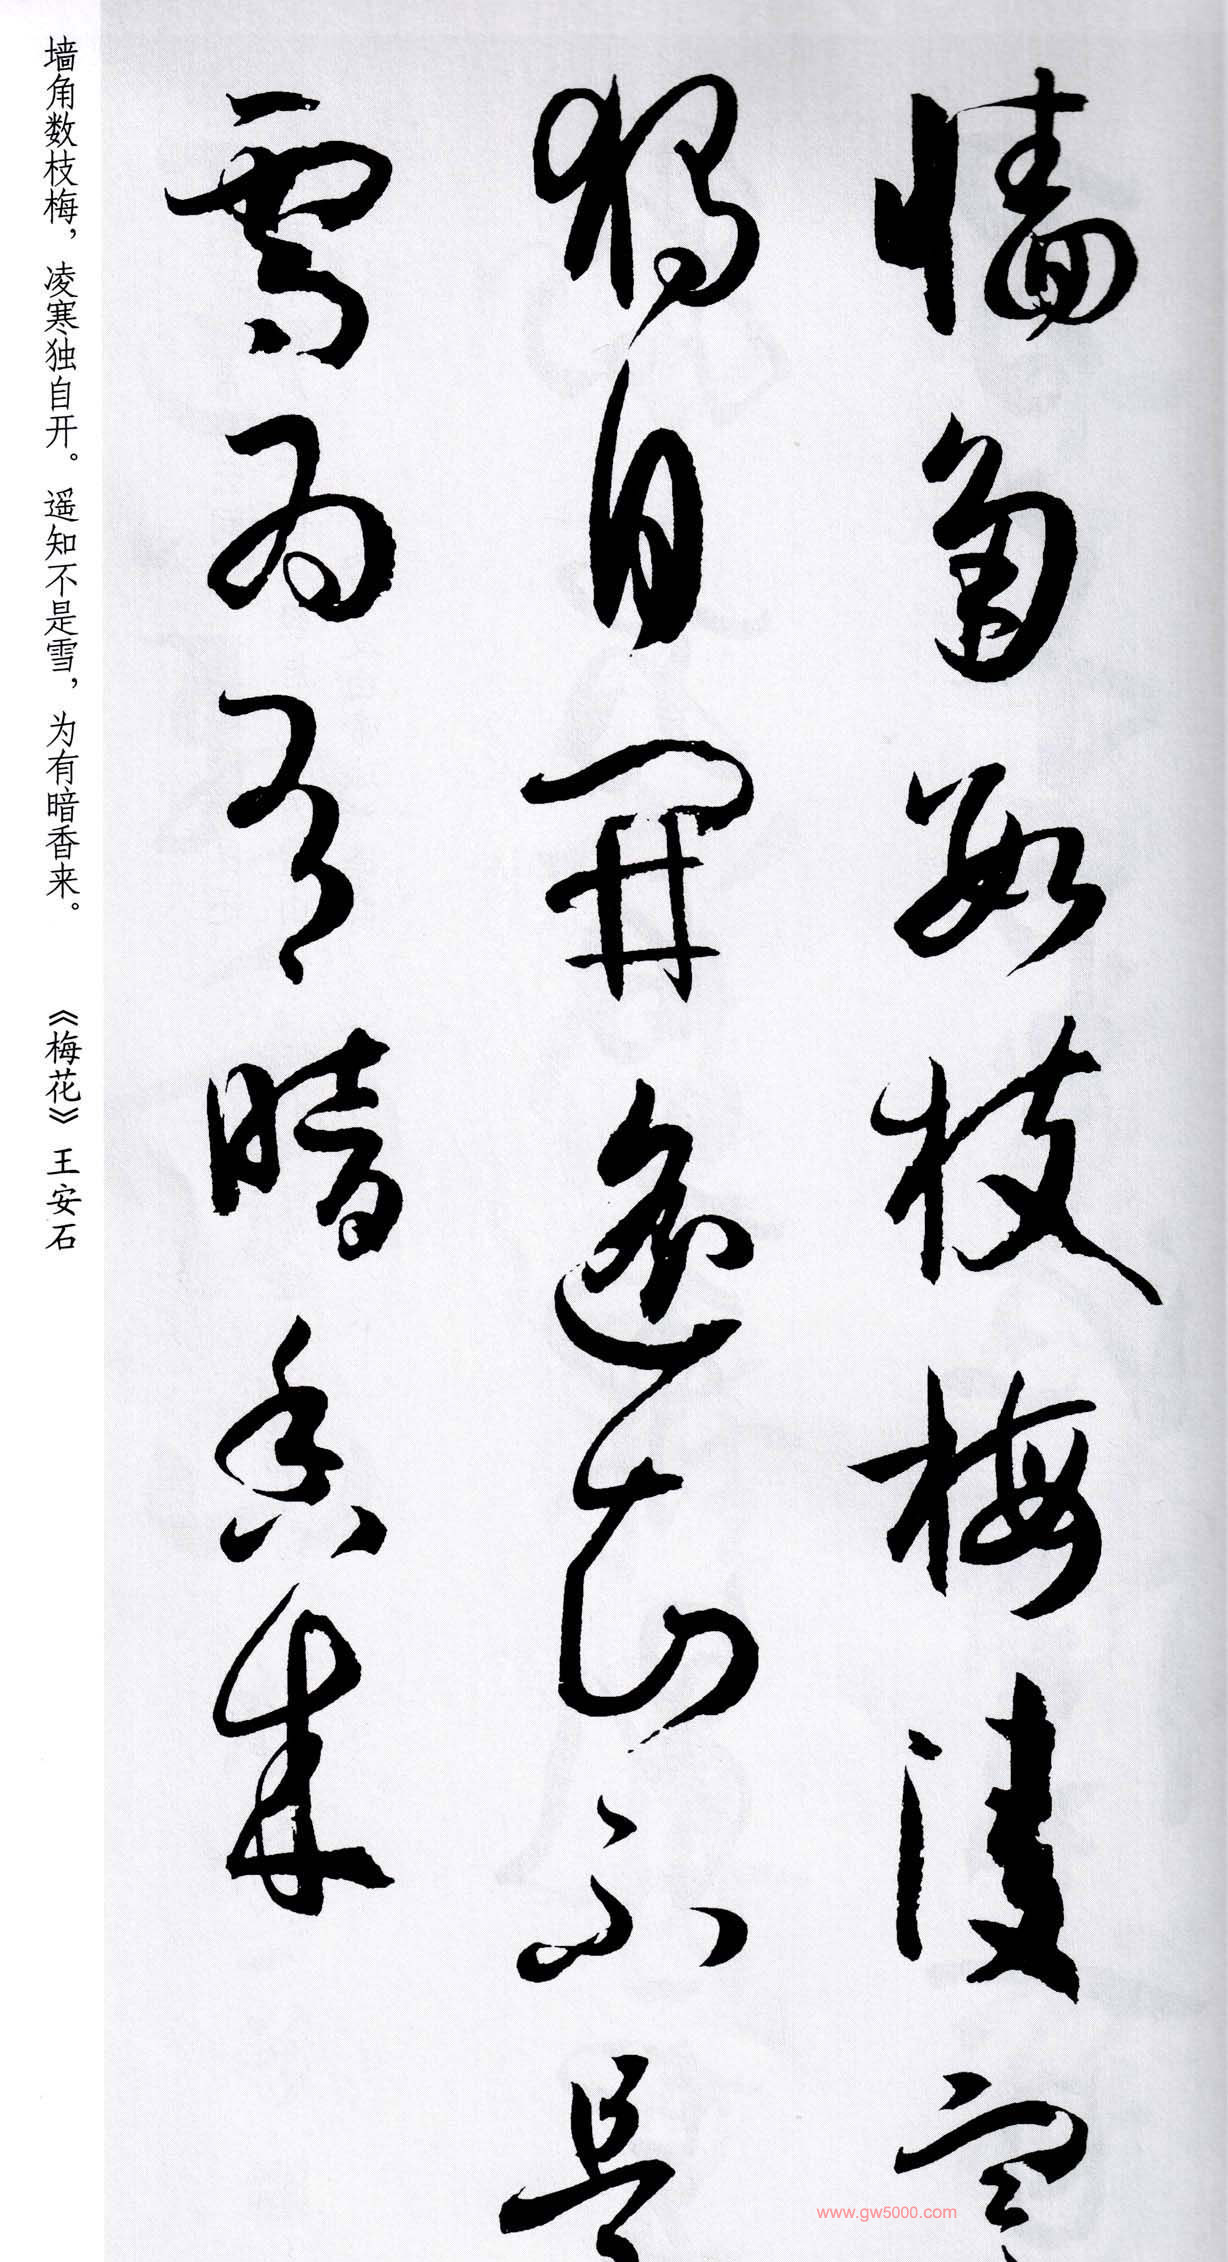 墙角数枝梅凌寒
獨自開遥知不是
雪为有暗香来
墙角数枝梅，凌寒独自开。遥知不是雪，为有暗香来。 《梅花》王安石
www.gw5000.com